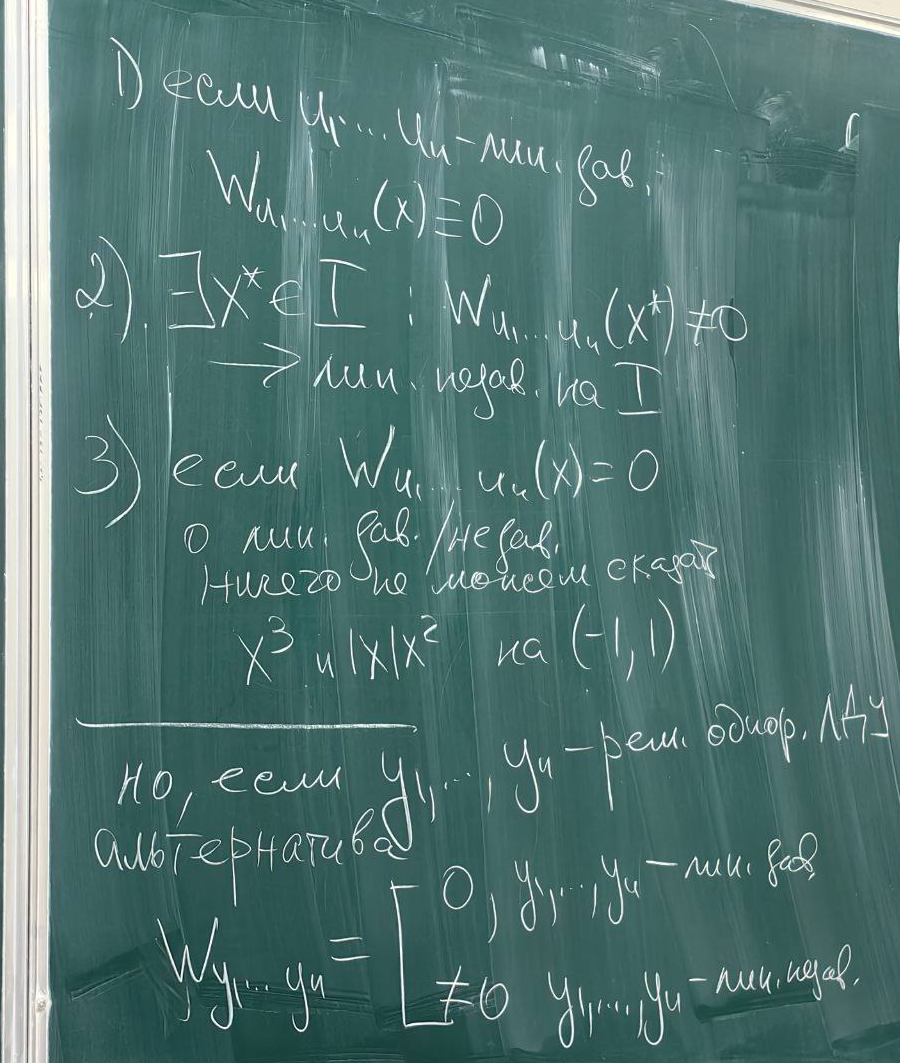 1) если u₁,...uₙ - лин. зав.
W u₁...uₙ (x) ≡ 0
2). ∃x* ∈ I : W u₁...uₙ (x*) ≠ 0
→ лин. незав. на I
3) если W u₁...uₙ (x) = 0
о лин. зав./незав.
ничего не можем сказать
x³ и |x|x² на (-1,1)
но, если y₁,...,yₙ - реш. однор. ЛДУ
альтернатива
W y₁...yₙ = [ 0, y₁,...,yₙ - лин. зав.
≠0 y₁,...,yₙ - лин. незав.